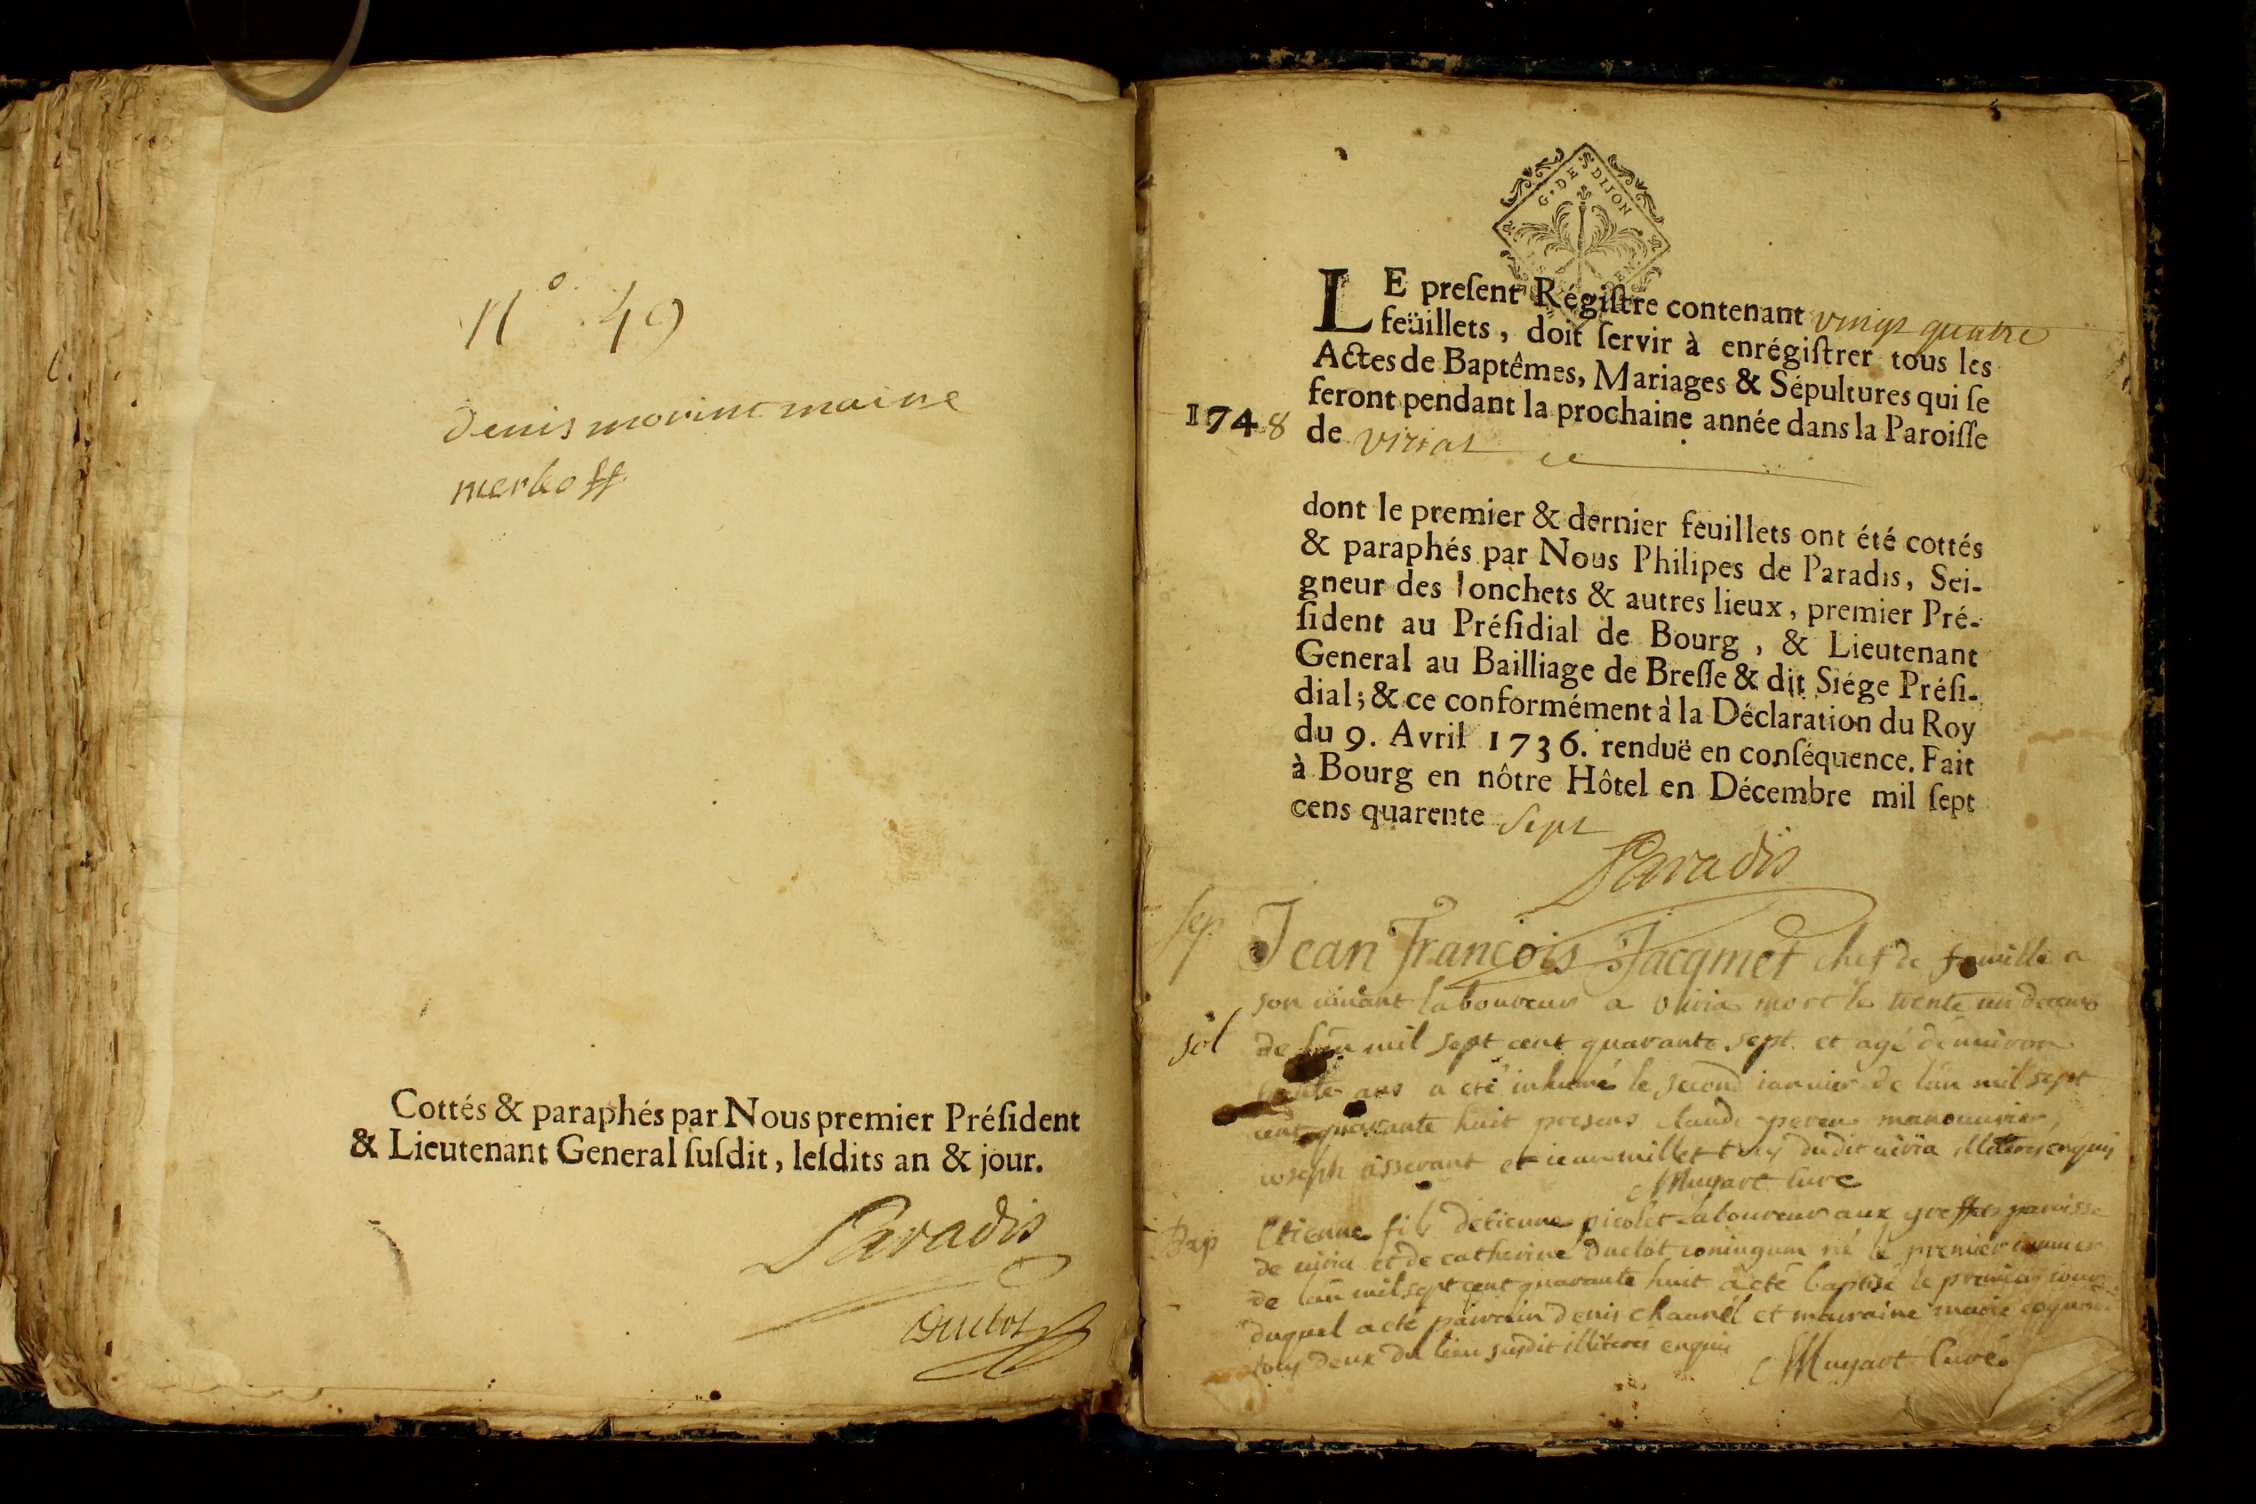 n° 49
denis morint maine
Cottés & paraphés par Nous premier Président
& Lieutenant General ſuſdit, leſdits an & jour.
Paradis
Duclot
G. DE DIJON
LE preſent Régiſtre contenant vingt quatre
feüillets, doit ſervir à enrégiſtrer tous les
Actes de Baptêmes, Mariages & Sépultures qui ſe
feront pendant la prochaine année dans la Paroiſſe
1748 de viriat
dont le premier & dernier feuillets ont été cottés
& paraphés par Nous Philipes de Paradis, Sei-
gneur des Jonchets & autres lieux, premier Pré-
ſident au Préſidial de Bourg, & Lieutenant
General au Bailliage de Breſſe & dit Siége Préſi-
dial; & ce conformément à la Déclaration du Roy
du 9. Avril 1736. renduë en conſéquence. Fait
à Bourg en nôtre Hôtel en Décembre mil ſept
cens quarente sept
Paradis
sep Jean François Jacqmet chef de famille a
son vivant laboureur a viria mort le trente un decemb
sol de lan mil sept cent quarante sept et agé denviron
ans a eté inhumé le second ianvier de lan mil sept
cent quarante huit presens claude manouvrier,
ioseph et iean millet tous dudit viria illiteres enquis
Muyart curé
Bap Etienne fils detienne picolet laboureur aux greffets paroisse
de viria et de catherine duclot coniugum né le premier ianvier
de lan mil sept cent quarante huit a eté baptisé le premier iour
duquel a eté parrain denis et marraine marie
tous deux du lieu susdit illiteres enquis Muyart curé